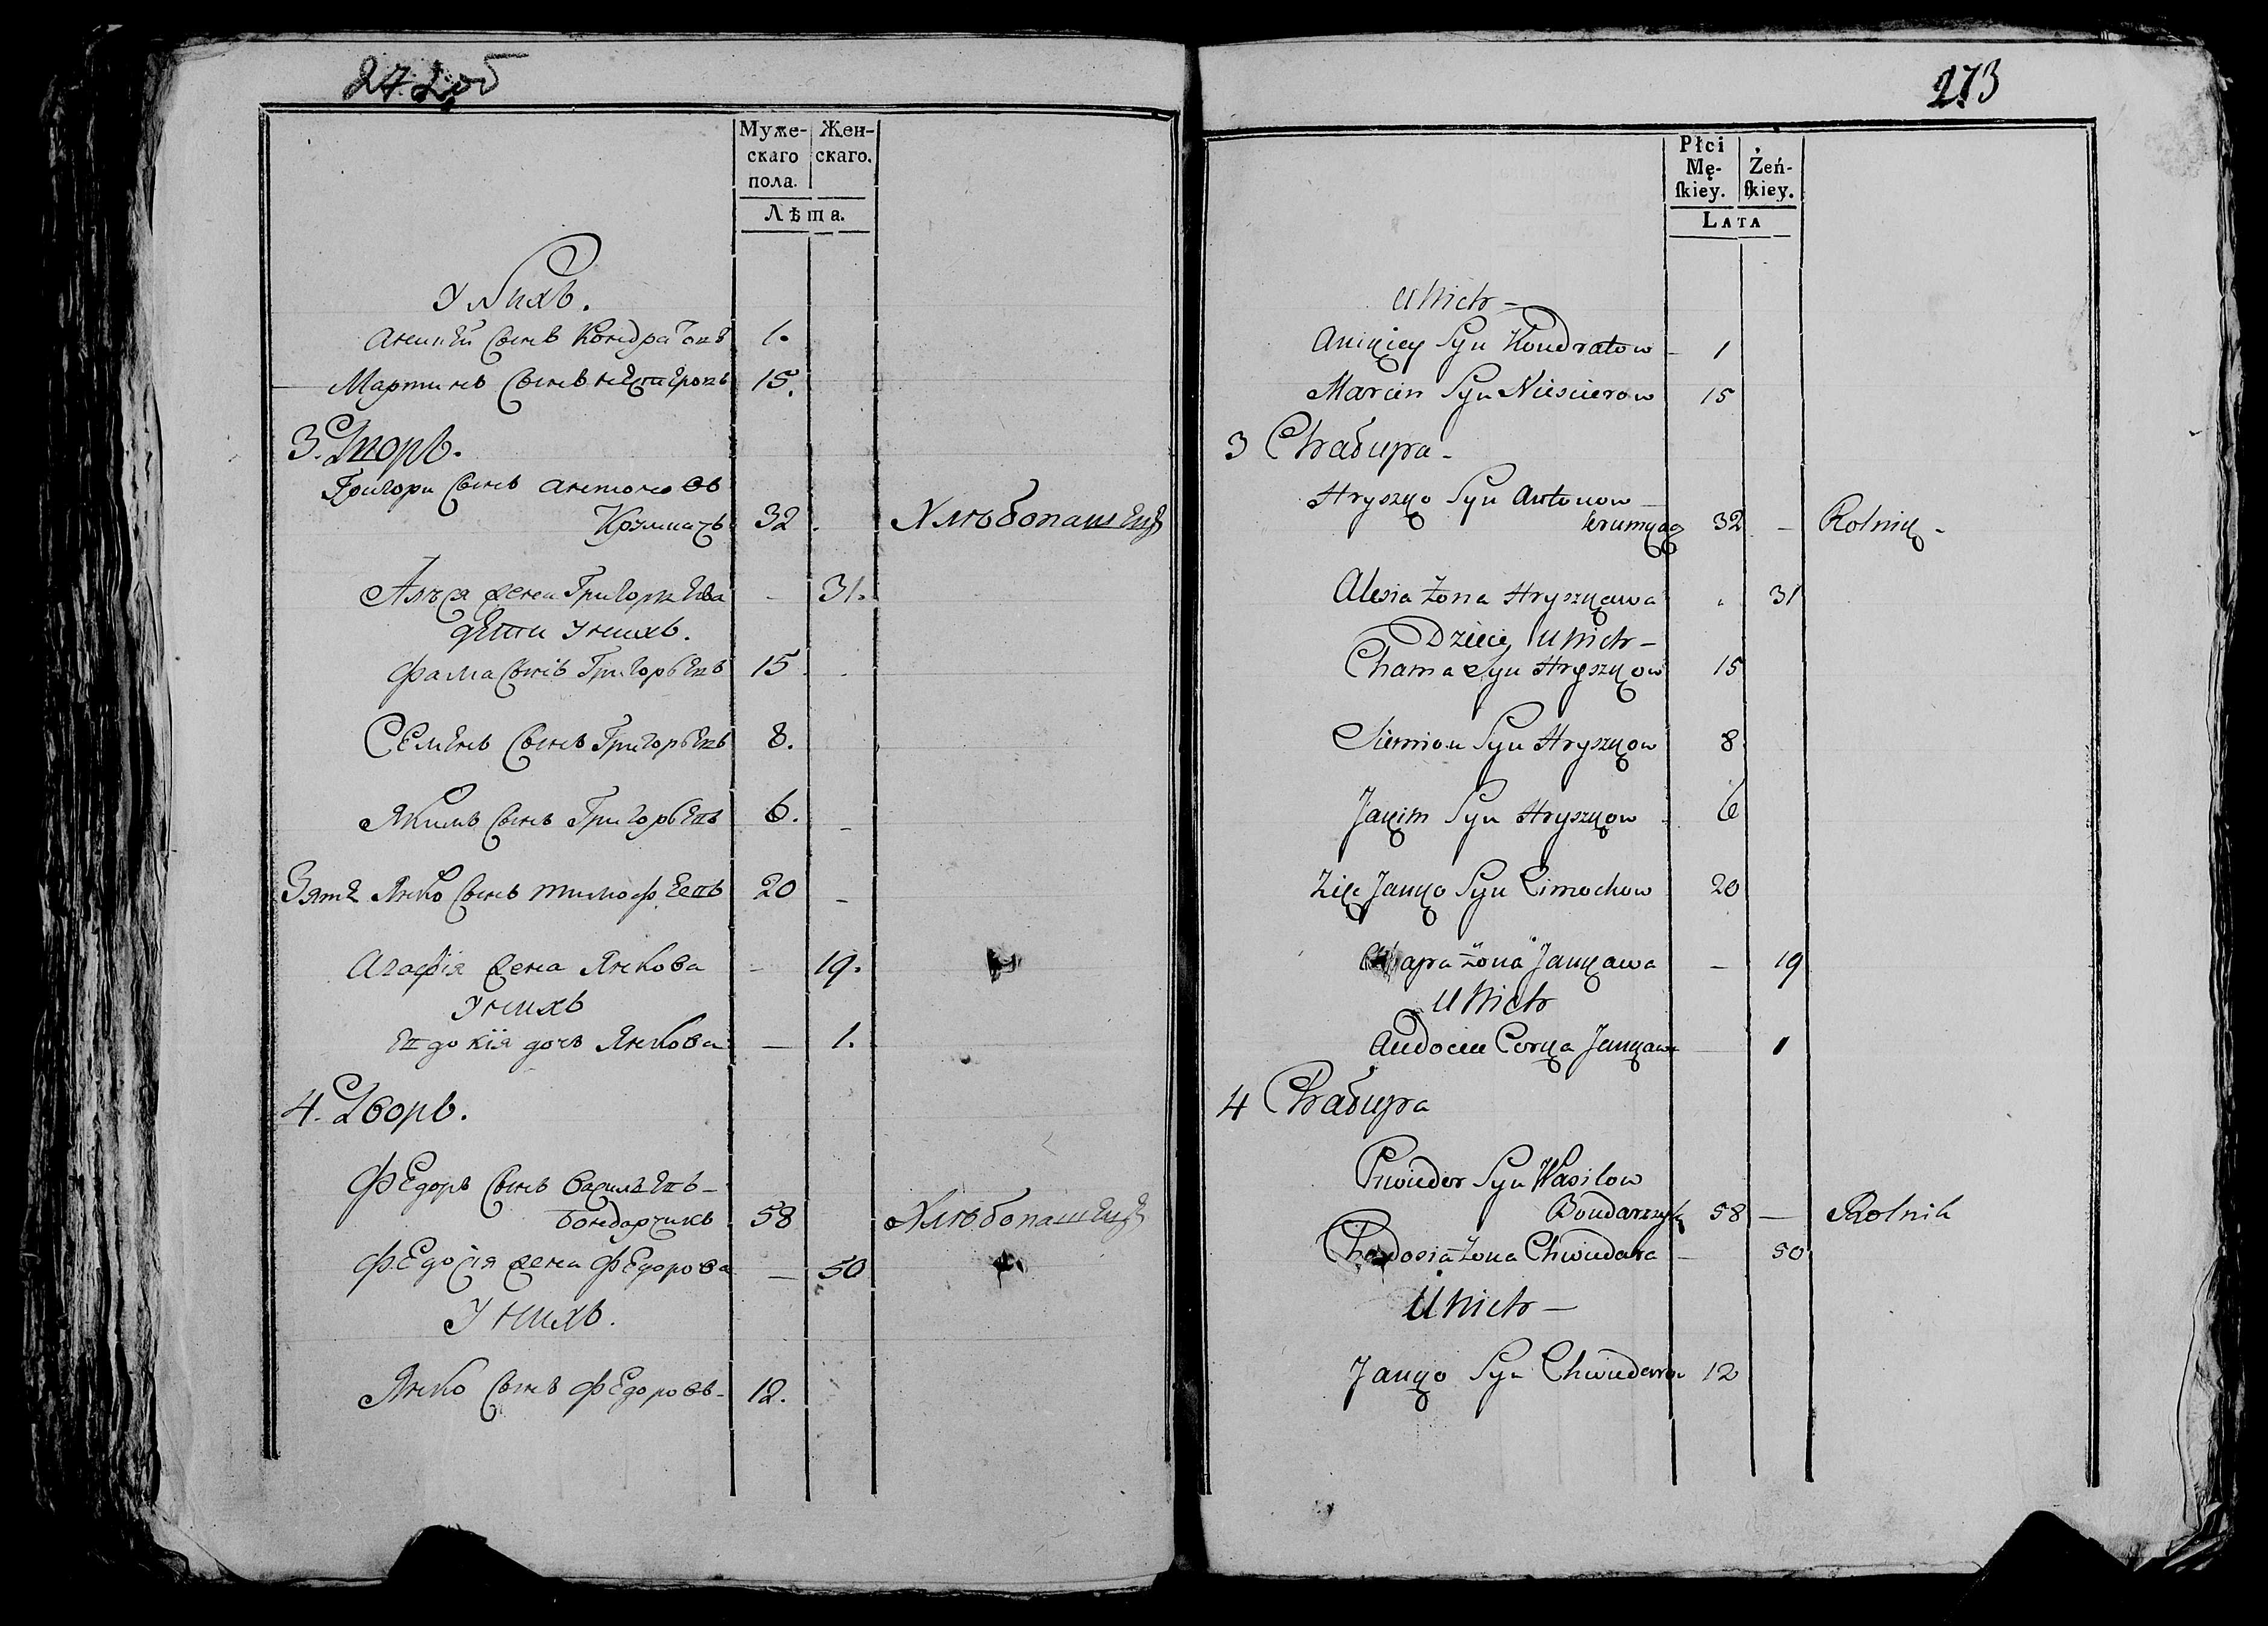 272об
Муже-
скаго
пола.
Жен-
скаго.
Лѣта.
У Нихъ.
Аникѣй сынъ Кондратовъ 1.
Мартинъ сынъ Нестеровъ 15.
3. Дворъ.
Григори сынъ Антоновъ
32. Хлѣбопашецъ
Алѣся жена Григорьева - 31.
дети У нихъ.
Фама сынъ Григорьевъ 15.
Семенъ сынъ Григорьевъ 8.
Якимъ сынъ Григорьевъ 6.
Зять Янко сынъ Тимофеевъ 20
Агафія жена Янкова - 19.
У нихъ
Евдокія дочь Янкова - 1.
4. Дворъ.
Федоръ сынъ Васильевъ -
Бондарчикъ 58 Хлѣбопашецъ
Федосія жена Федорова - 50
У нихъ.
Янко сынъ Федоровъ - 12.
273
Płci
Mę-
ſkiey.
Żeń-
ſkiey.
Lata
U Nich -
Anikiey Syn Kondratow - 1
Marcin Syn Niescierow 15
3 Chałupa -
Hryszko Syn Antonow -
32 - Rolnik -
Alesia żona Hryszkowa 31
Dzieci U Nich -
Chama Syn Hryszkow 15
Siemion Syn Hryszkow 8
Jakim Syn Hryszkow 6
Zięć Janko Syn Cimochow 20
żona Jankawa - 19
U Nich
Audocia Corka Jankawa 1
4 Chałupa
Chwiedor Syn Wasilow
Bondarczyk 58 - Rolnik
Chadosia żona Chwiedara - 50
U Nich -
Janko Syn Chwiedarow 12